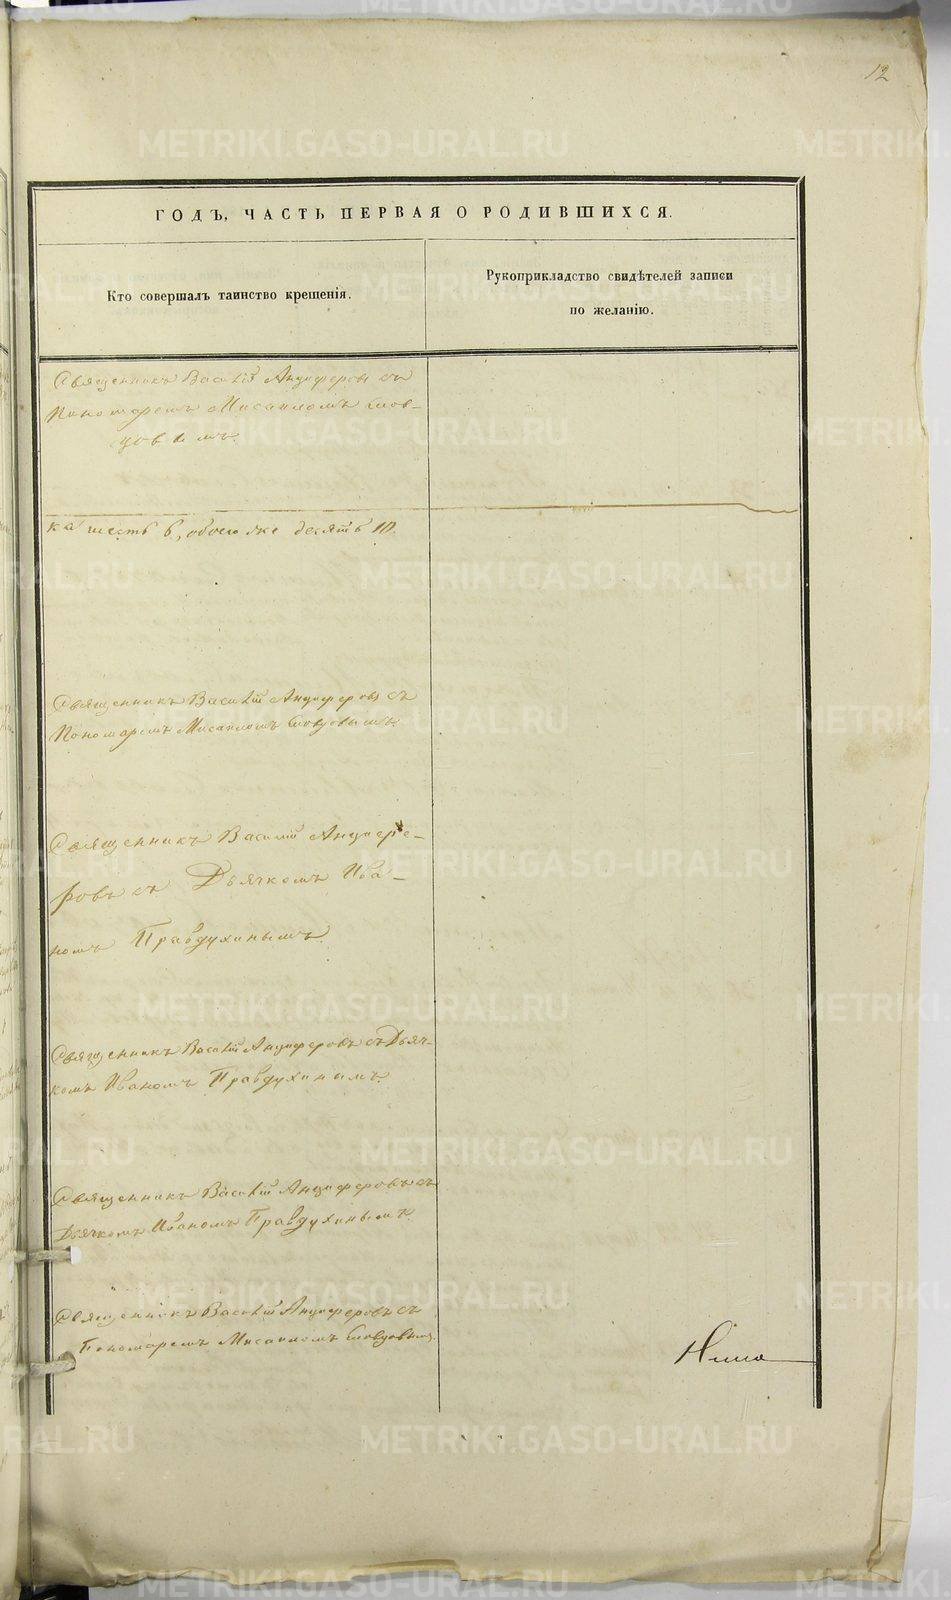 12
ГОДЪ, ЧАСТЬ ПЕРВАЯ О РОДИВШИХСЯ.
Кто совершалъ таинство крещенія.
Рукоприкладство свидѣтелей записи
по желанію.
Священникъ Василій Анциферовъ съ
Пономаремъ Мисаиломъ Словцовымъ
ка шесть 6, обоего же десять 10.
Священникъ Василій Анциферовъ съ
Пономаремъ Мисаиломъ Словцовымъ
Священникъ Василій Анцифе-
ровъ съ Дьячкомъ Ива-
номъ Правдухинымъ
Священникъ Василій Анциферовъ съ Дьяч-
комъ Иваномъ Правдухинымъ
Священникъ Василій Анциферовъ съ
Дьячкомъ Иваномъ Правдухинымъ
Священникъ Василій Анциферовъ съ
Пономаремъ Мисаиломъ Словцовымъ
METRIKI.GASO-URAL.RU